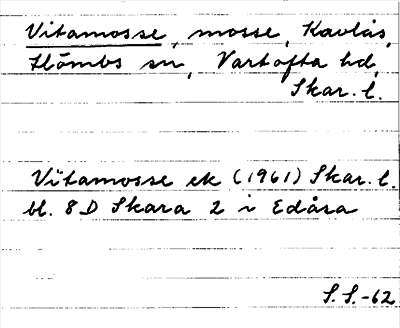 Vitamosse, mosse, Kavlås,
Hömbs sn, Vartofta hd,
Skar. l.
Vitamosse ek (1961) Skar. l.
bl. 8D Skara 2 i Edåsa
S.S.-62